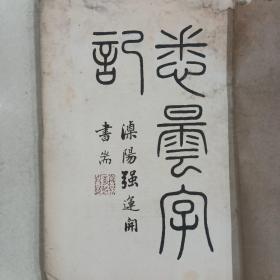 悉曇字
記
溧陽强運開
書耑